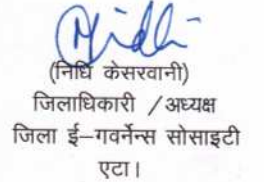 Nidhi
(निधि केसरवानी)
जिलाधिकारी / अध्यक्ष
जिला ई–गवर्नेन्स सोसाइटी
एटा।